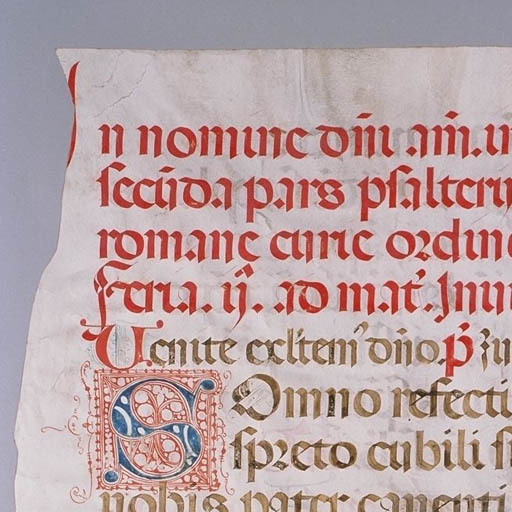 In nomine dñi am̃. in
secũda pars psalterii
romane curie ordine
Feria. ij. ad mat'. Inui
Uenite exl'tem' dño. p̃
Somno refecti
spreto cubili s
nobis pater canenti